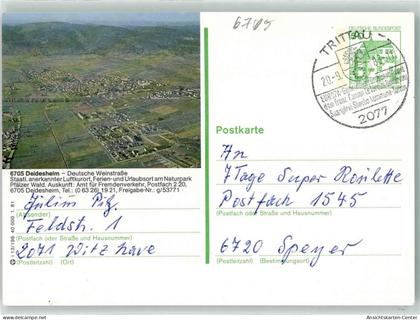 6705
DEUTSCHE BUNDESPOST
TRITTAU
2077
6705 Deidesheim – Deutsche Weinstraße
Staatl. anerkannter Luftkurort, Ferien- und Urlaubsort am Naturpark
Pfälzer Wald. Auskunft: Amt für Fremdenverkehr, Postfach 2 20,
6705 Deidesheim, Tel.: (0 63 26) 19 21, Freigabe-Nr.: g/53771
Postkarte
An
7 Tage Super Roulette
Postfach 1545
(Postfach oder Straße und Hausnummer)
6720 Speyer
(Postleitzahl) (Bestimmungsort)
(Absender)
Feldstr. 1
(Postfach oder Straße und Hausnummer)
2071 Witzhave
(Postleitzahl) (Ort)
Ansichtskarten-Center